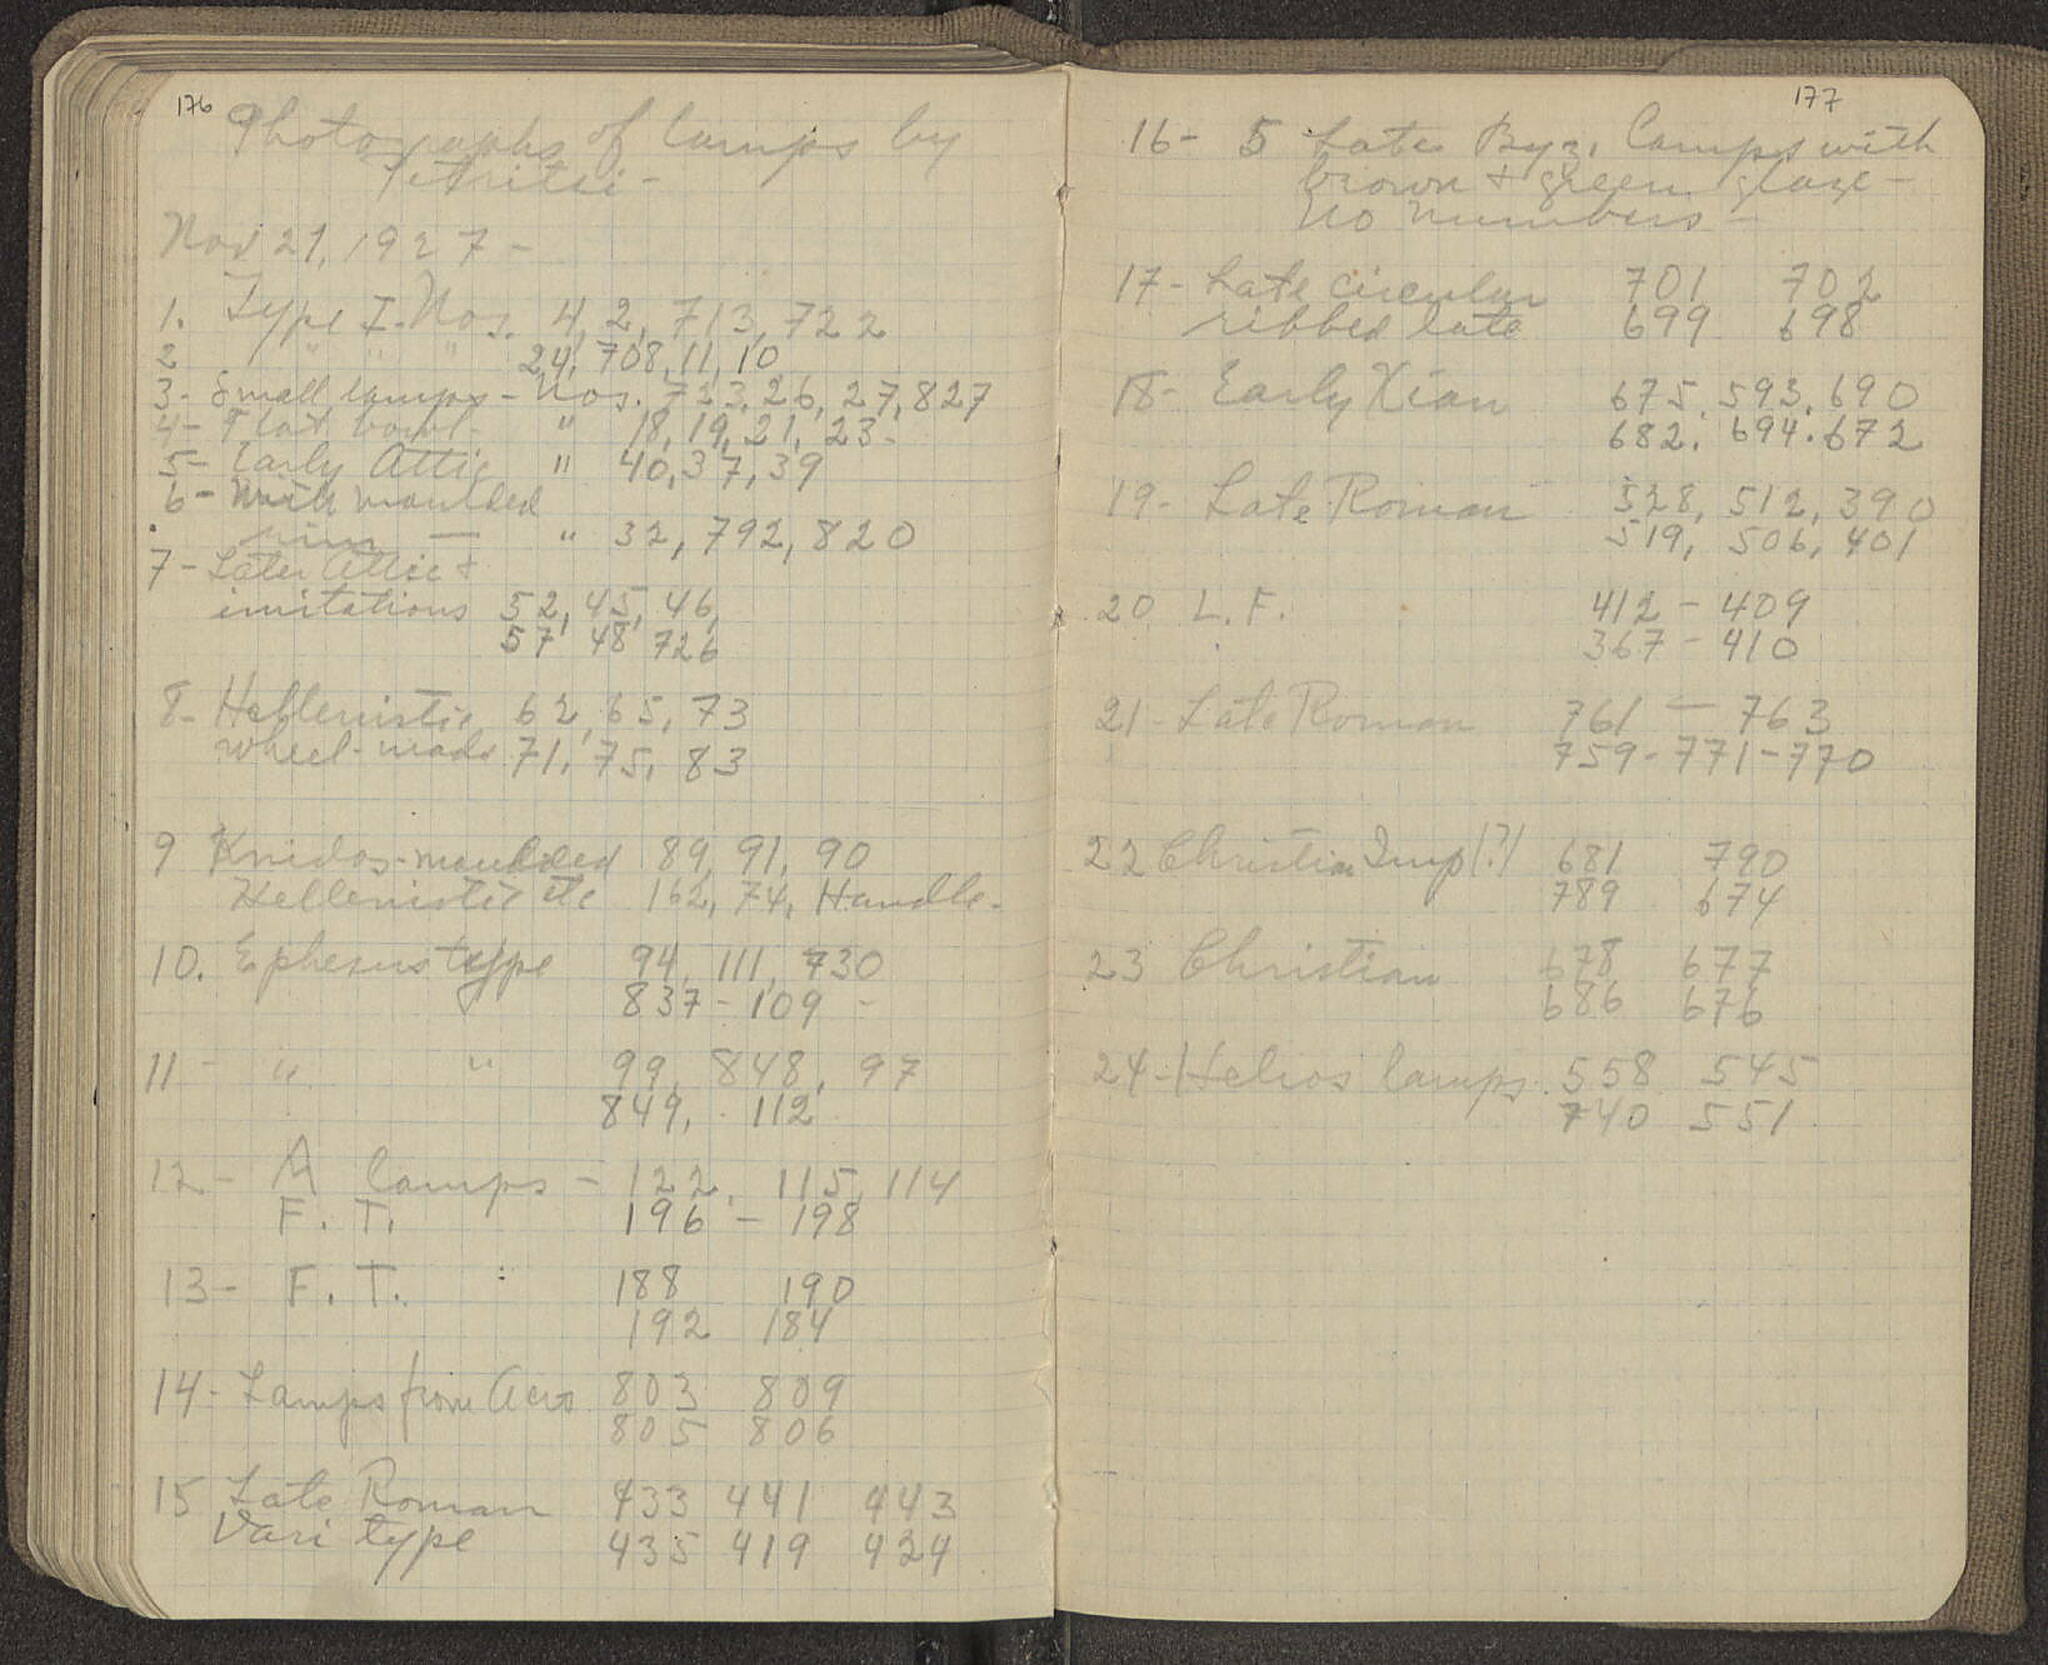 176
Photographs of lamps by
Petritsi -
Nov 21, 1927 -
1. Type I - Nos. 4, 2, 713, 722
2 " " " 24, 708, 11, 10
3 - Small lamps - Nos. 723, 26, 27, 827
4 - Flat bowl - " 18, 19, 21, 23 -
5 - Early Attic " 40, 37, 39
6 - With moulded
rim — " 32, 792, 820
7 - Later Attic +
imitations 52, 45, 46,
57, 48, 726
8 - Hellenistic 62, 65, 73
wheel-made 71, 75, 83
9 Knidos - moulded 89, 91, 90
Hellenistic etc 162, 74, Handle -
10. Ephesus type 94, 111, 730
837 - 109 -
11 - " " 99, 848, 97
849, 112
12 - A lamps - 122, 115, 114
F. T. 196 - 198
13 - F. T. 188 190
192 184
14 - Lamps from Acro 803 809
805 806
15 Late Roman 433 441 443
Vari type 435 419 424
177
16 - 5 Late Byz. Lamps with
brown + green glaze -
no numbers -
17 - Late circular 701 702
ribbed late 699 698
18 - Early Xian 675, 593, 690
682. 694. 672
19 - Late Roman 528, 512, 390
519, 506, 401
20 L. F. 412 - 409
367 - 410
21 - Late Roman 761 — 763
759 - 771 - 770
22 Christian Imp (?) 681 790
789 674
23 Christian 678 677
686 676
24 - Helios lamps 558 545
740 551